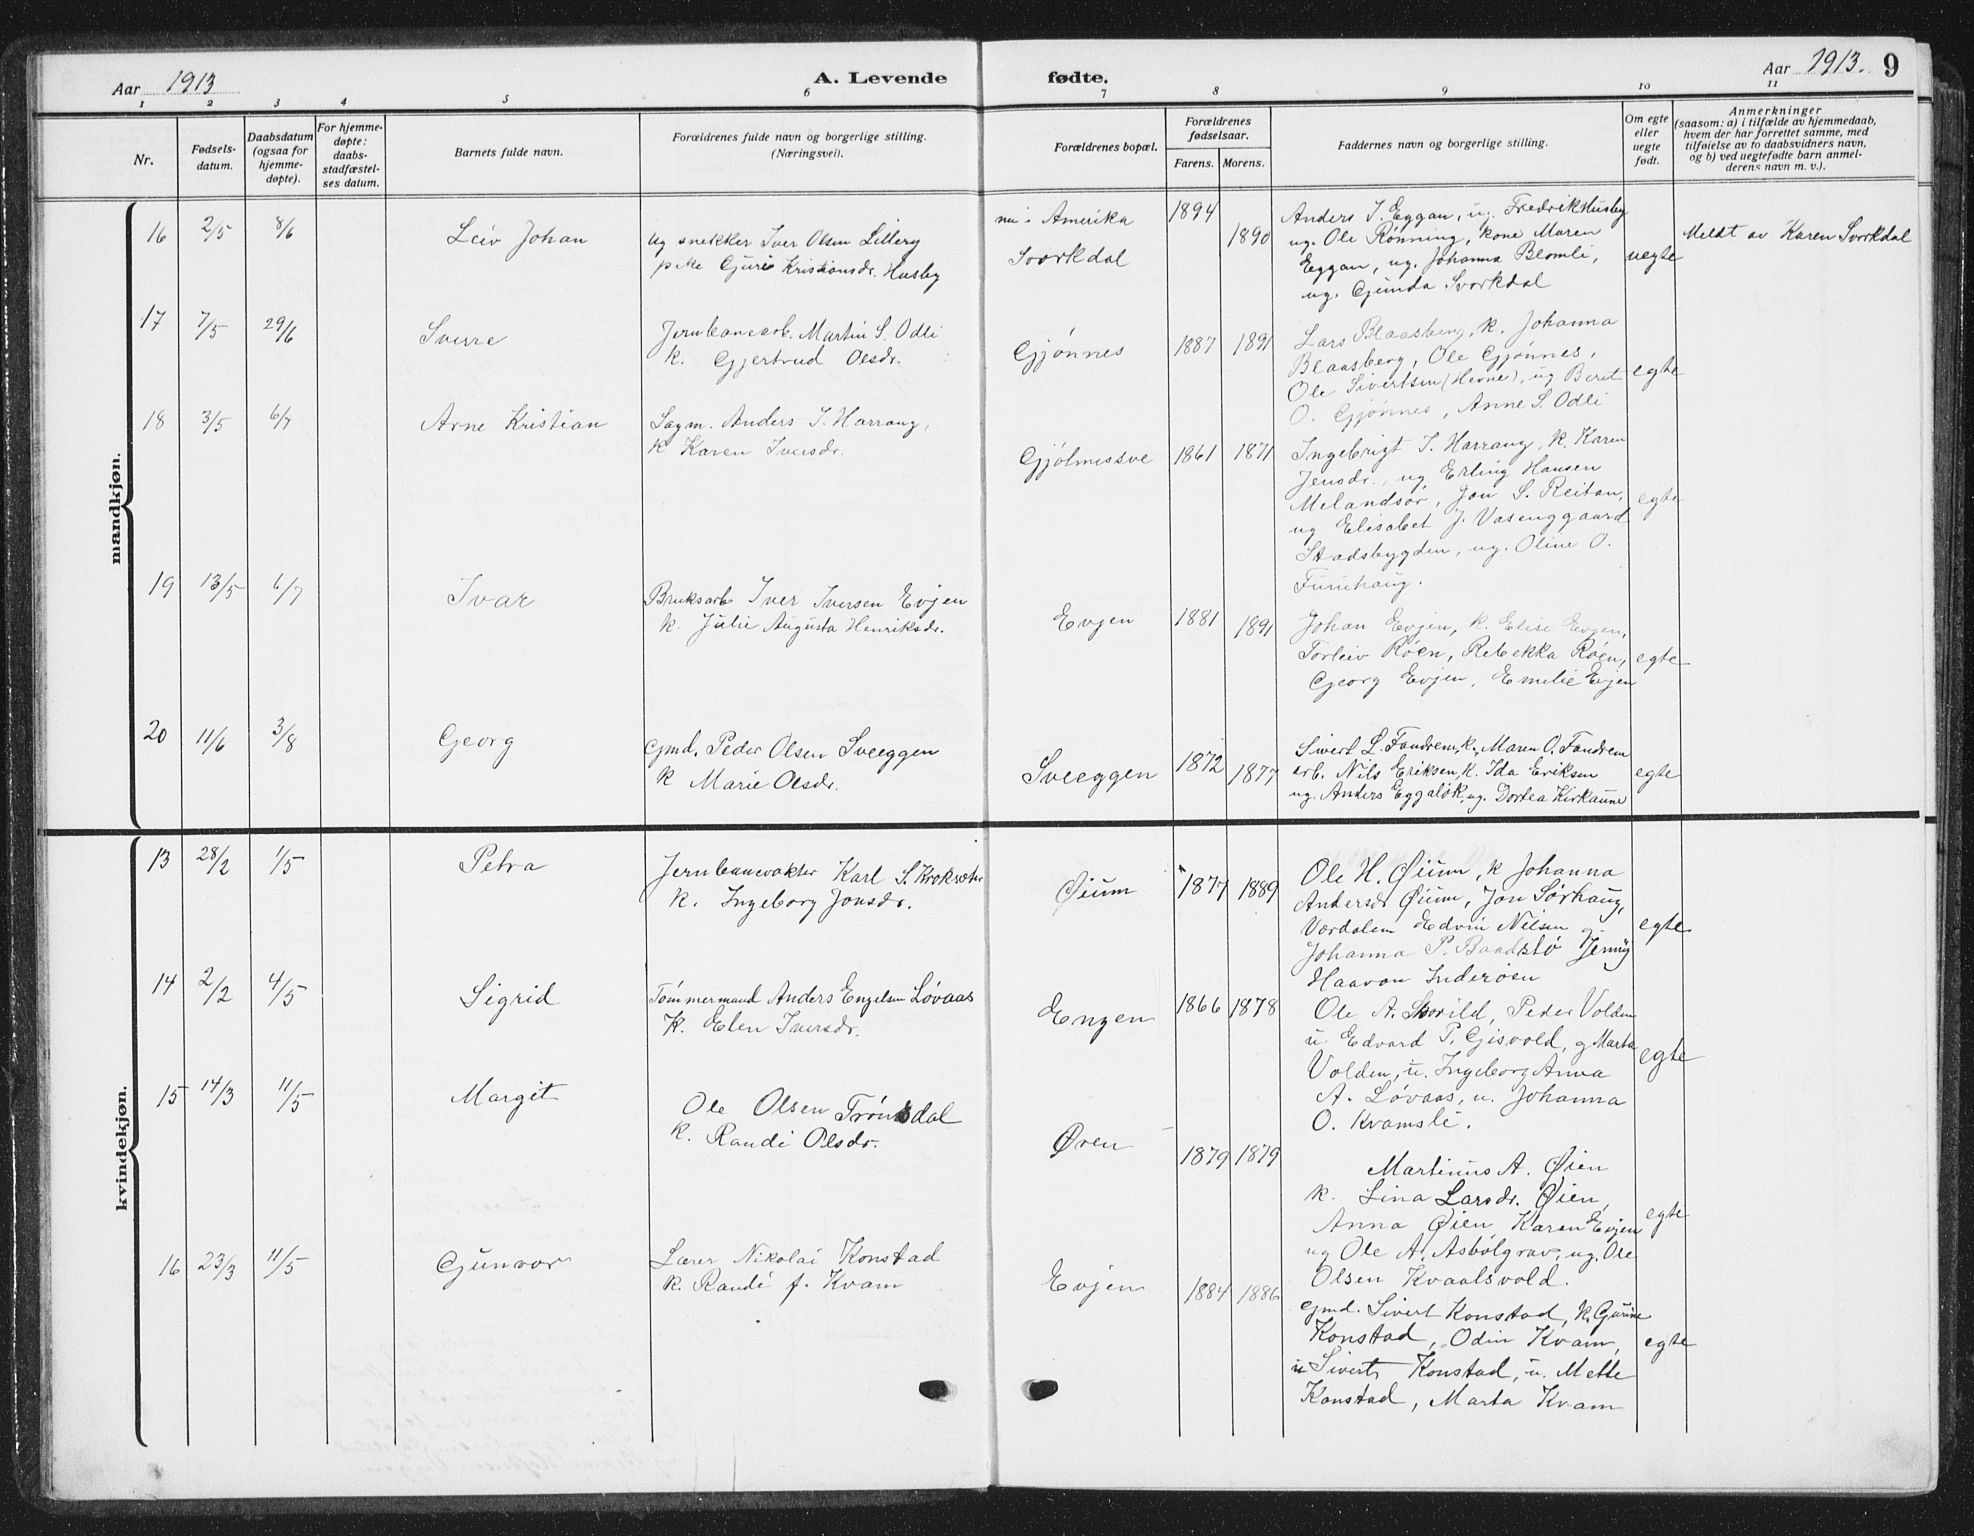 Aar 1913
A. Levende fødte.
Aar 1913. 9
1 2 3 4 5 6 7 8 9 10 11
Nr.
Fødsels-
datum.
Daabsdatum
(ogsaa for
hjemme-
døpte).
For hjemme-
døpte:
daabs-
stadfæstel-
ses datum.
Barnets fulde navn.
Forældrenes fulde navn og borgerlige stilling.
(Næringsvei).
Forældrenes bopæl.
Forældrenes
fødselsaar.
Farens. Morens.
Faddernes navn og borgerlige stilling.
Om egte
eller
uegte
født.
Anmerkninger
(saasom: a) i tilfælde av hjemmedaab,
hvem der har forrettet samme, med
tilføielse av to daabsvidners navn,
og b) ved uegtefødte barn anmel-
derens navn m. v.).
mandkjøn.
16 2/5 8/6 Leiv Johan
ug snekker Iver Olsen Lillery
pike Guri Kristiansdr. Husby
nu i Amerika
Svorkdal
1894 1890
Anders I. Eggan, ug. Fredrik Husby
ug. Ole Rønning, kone Maren
Eggan, ug. Johanna Blomli,
ug. Gunda Svorkdal
uegte
Meldt av Karen Svorkdal
17 7/5 29/6 Sverre
Jernbanearb. Martin S. Odli
k. Gjertrud Olsdr.
Gjønnes
1887 1891
Lars Blaasberg, k. Johanna
Blaasberg, Ole Gjønnes,
Ole Sivertsen (Hevne), ug Beret
O. Gjønnes, Anne S. Odli
egte
18 3/5 6/7 Arne Kristian
Sagm. Anders I. Harrang,
k Karen Iversdr.
Gjølmessve
1861 1871
Ingebrigt I. Harrang, k. Karen
Jensdr., ug Erling Hansen
Melandsør, Jon S. Reitan,
ug Elisabet J. Vasenggaard
Stadsbygden, ug. Oline O.
Furuhaug.
egte
19 13/5 6/7 Ivar
Bruksarb Iver Iversen Evjen
k. Julie Augusta Henriksdr.
Evjen
1881 1891
Johan Evjen, k. Elise Evjen,
Torleiv Røen, Rebekka Røen,
Georg Evjen, Emilie Evjen
egte
20 11/6 3/8 Georg
Gmd. Peder Olsen Sveeggen
k Marie Olsdr.
Sveeggen
1872 1877
Sivert L. Fandrem, k. Maren O. Fandrem
arb. Nils Eriksen, k. Ida Eriksen
ug. Anders Eggaløk, ug. Dortea Kirkaune
egte
kvindekjøn.
13 28/2 1/5 Petra
Jernbanevakter Karl S. Kroksæter
k. Ingeborg Jonsdr.
Øium
1877 1889
Ole H. Øium, k Johanna
Andersdr Øium, Jon Sørhaug,
Værdalen Edvin Nilsen g.
Johanna P. Baadstø Jenny
Haavan Inderøen
egte
14 2/2 4/5 Sigrid
Tømmermand Anders Engelsen Løvaas
K. Elen Iversdr.
Engen
1866 1878
Ole A. Skorild, Peder Volden
u. Edvard P. Gisvold, g Marta
Volden, u. Ingeborg Anna
A. Løvaas, u. Johanna
O. Kvamsli.
egte
15 14/3 11/5 Margit
Ole Olsen Trønsdal
k. Randi Olsdr.
Øren
1879 1879
Martinus A. Øien
k. Lina Larsdr. Øien,
Anna Øien Karen Evjen
ug Ole A. Asbølgrav, ug. Ole
Olsen Kvaalsvold.
egte
16 23/3 11/5 Gunvor
Lærer Nikolai Konstad
k. Randi f. Kvam
Evjen
1884 1886
Gmd. Sivert Konstad, k. Gurine
Konstad, Odin Kvam,
u Sivert Konstad, u. Mette
Konstad, Marta Kvam
egte